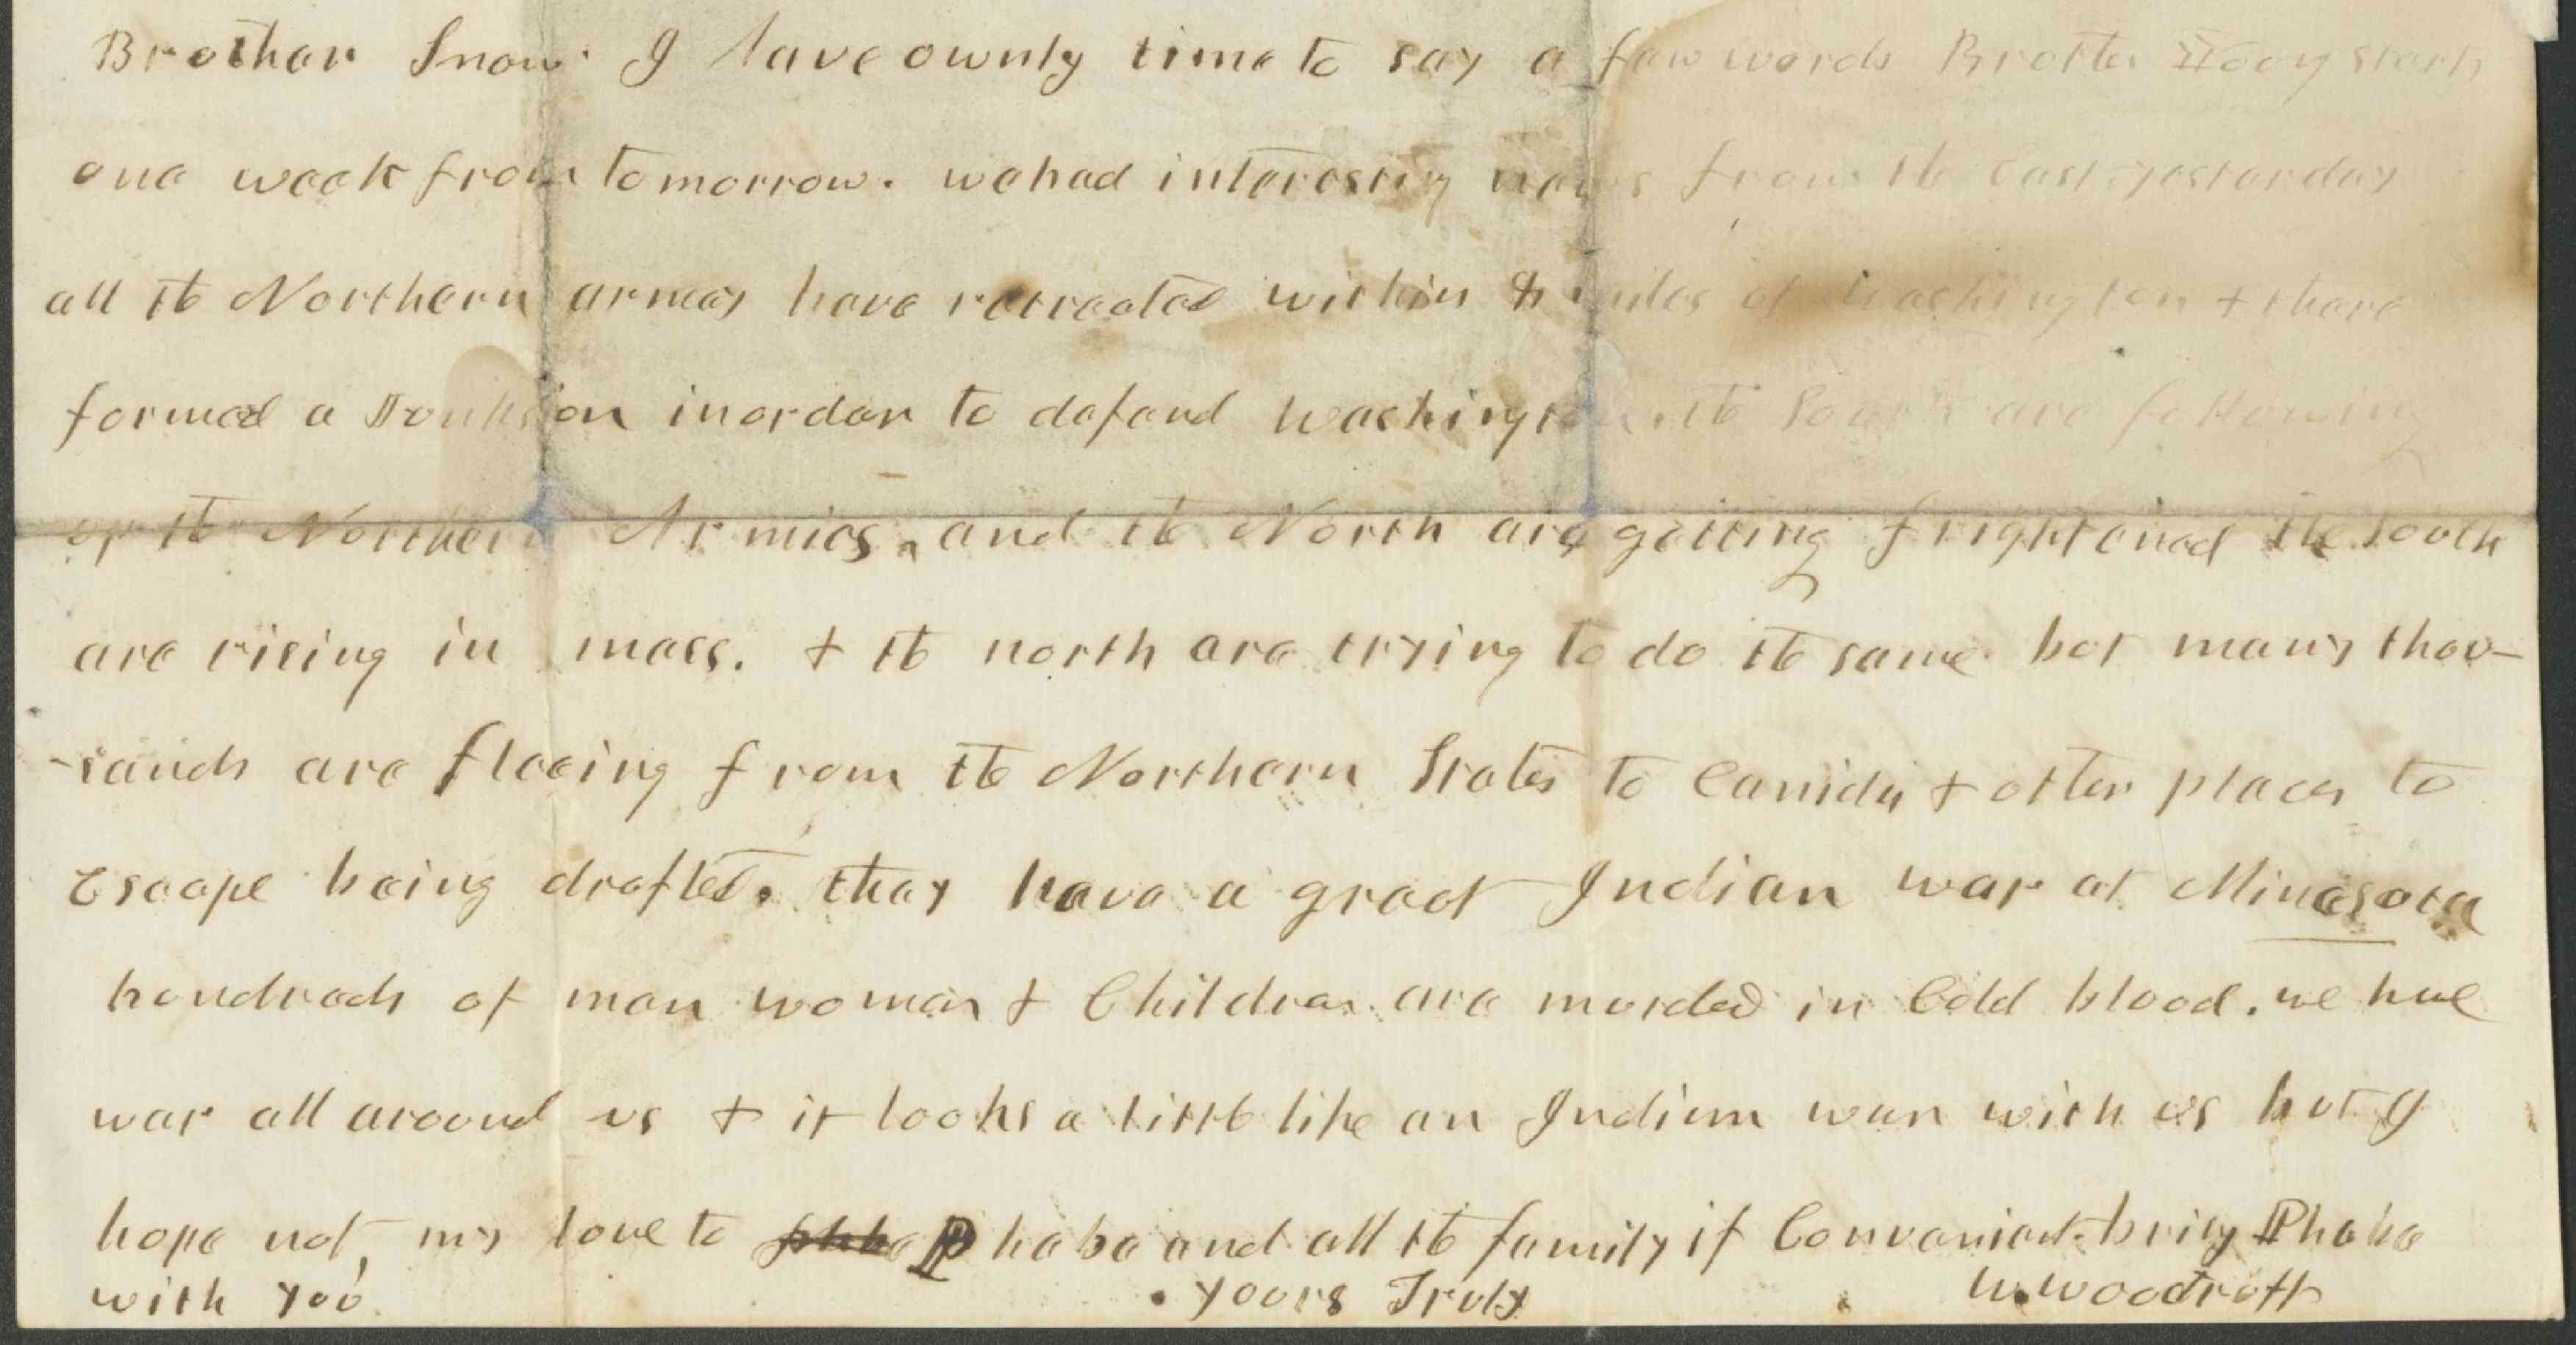 Brother Snow. I have ownly time to say a few words Brother starts
one week from tomorrow. we had interesting news from the East yesterday
all the Northern armies have retreated within miles of Washington & there
formed a in order to defend Washington. the South are following
up the Northern Armies. and the North are getting frightened the South
are rising in mass. & the north are trying to do the same but many thou-
-sands are fleeing from the Northern States to Canida & other places to
Escape being drafted. they have a great Indian war at Minesota
hundreds of men women & Children are murded in Cold blood. we have
war all around us & it looks a little like an Indian war with us but I
hope not, my love to Phebe and all the family if Convenient bring Phebe
with you Yours Truly W. Woodruff